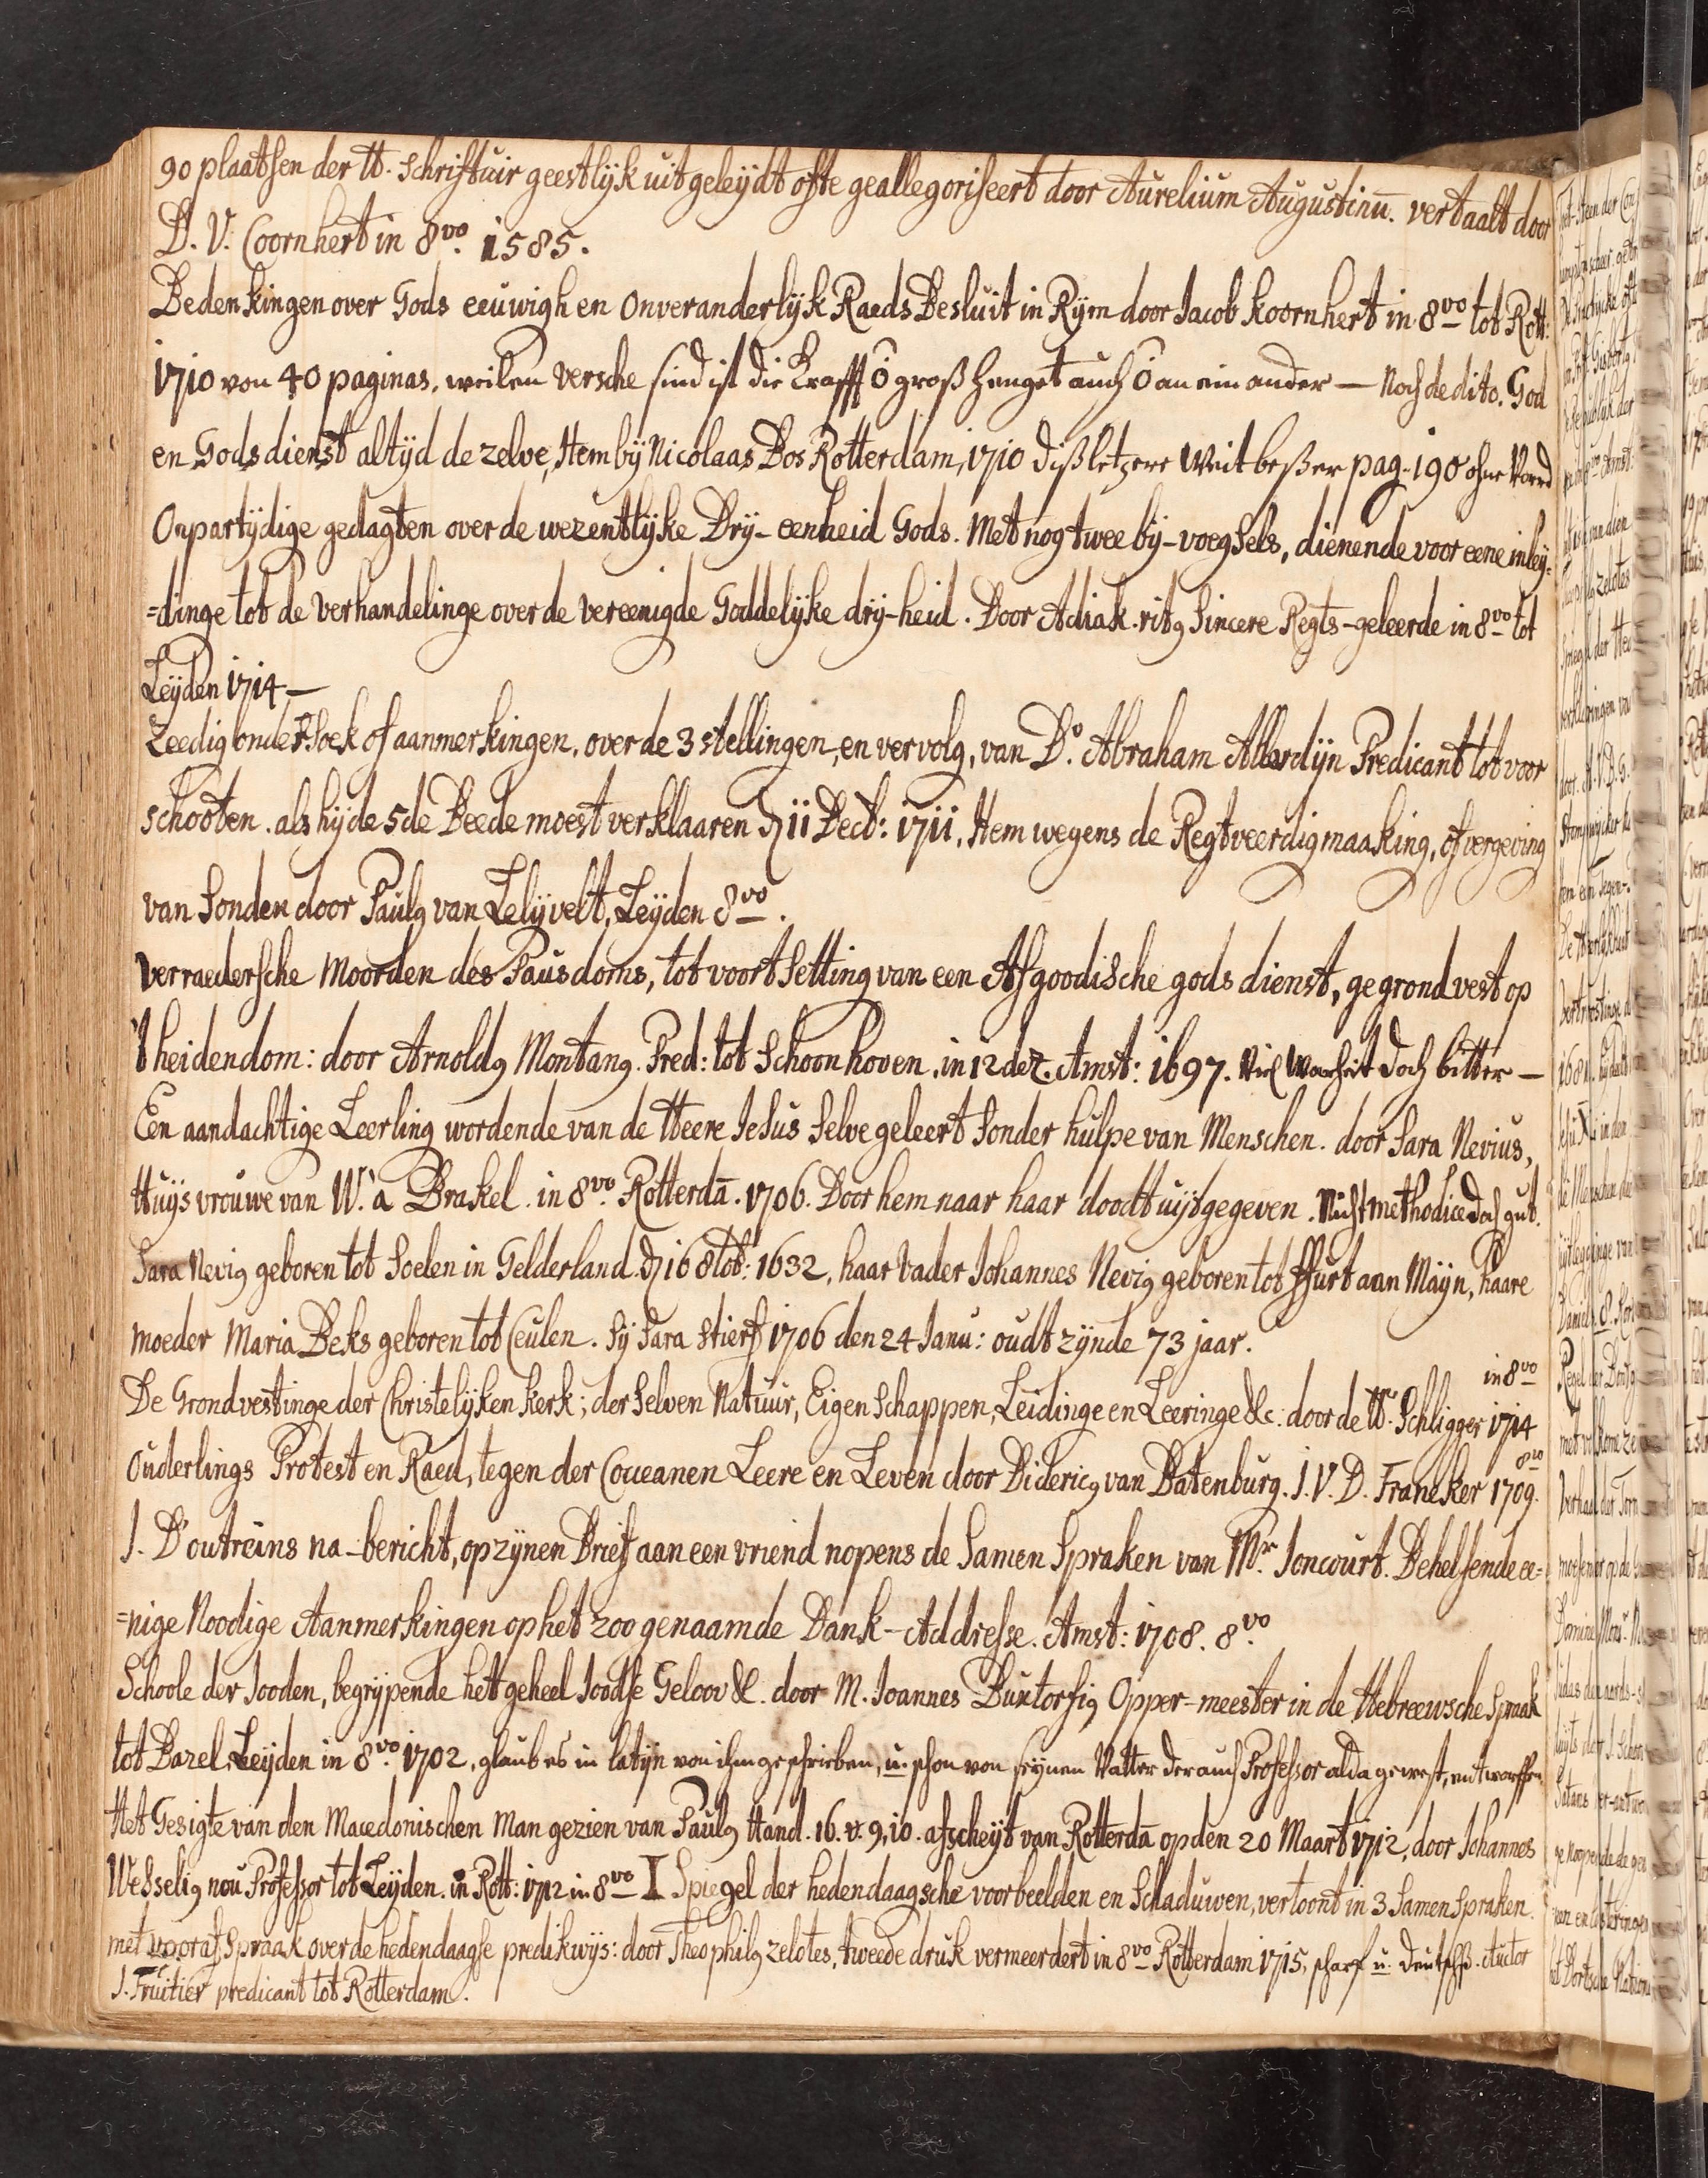 90 plaatsen der H. Schriftuir geestlijk uitgeleijdt ofte geallegoriseert door Aurelium Augustinū. vertaalt door
D. V. Coornhert in 8vo. 1585.
Bedenkingen over Gods eeuwigh en Onveranderlijk Raeds Besluit in Rijm door Jacob Koornhert in 8vo tot Rott:
1710 von 40 paginas. weilen versche sind ist die Krafft ō groß henget auch ō an ein ander — Noch de dito. God
en Gods dienst altijd de zelve, Item bij Nicolaas Bos Rotterdam, 1710 diß letzere Weit beßer pag. 190 ohne Vorred
Onpartijdige gedagten over de wezentlijke Drij-eenheid Gods. Met nog twee bij-voegsels, dienende voor eene inleij=
=dinge tot de Verhandelinge over de vereenigde Goddelijke drij-heid. Door Adiak.rit9 Sincere Regts-geleerde in 8vo tot
Leijden 1714 —
Zeedig ondersoek of aanmerkingen, over de 3 stellingen, en vervolg, van Do. Abraham Allardijn Predicant tot voor
schooten. als hij de 5de Beede moest verklaaren 11 Decb: 1711. Item wegens de Regtveerdigmaaking, of vergeving
van Sonden door Paul9 van Lelijvelt, Leijden 8vo.
Verraedersche Moorden des Pausdoms, tot voortsetting van een Afgoodische gods dienst, gegrondvest op
't heidendom: door Arnold9 Montan9. Pred: tot Schoonhoven, in 12 dez. Amst: 1697. Viel Warheit doch bitter —
Een aandachtige Leerling wordende van de Heere Jesus Selve geleert Sonder hulpe van Menschen. door Sara Nevius,
Huijsvrouwe van W. a Brakel. in 8vo. Rotterdā. 1706. Door hem naar haar doodt uijtgegeven. Nicht methodice doch gut.
Sara Nevi9 geboren tot Soelen in Gelderland. 16 8tob: 1632, haar Vader Johannes Nevi9 geboren tot ffurt aan Maijn, haare
moeder Maria Beks geboren tot Ceulen. Sij Sara stierf 1706 den 24 Janu: oudt zijnde 73 jaar.
in 8vo
De Grondvestinge der Christelijken Kerk; derselven Natuir, Eigenschappen, Leidinge en Leeringe &c. door de H. Schligger 1714
8vo
Ouderlings Protest en Raed, tegen der Cocceanen Leere en Leven door Dideric9 van Batenburg. J. V. D. Franeker 1709.
J. D'outreins na-bericht, op zijnen Brief aan een vriend nopens de Samen Spraken van Mr. Joncourt. Behelsende ee=
=nige Noodige Aanmerkingen op het zoo genaamde Dank-Addresse. Amst: 1708. 8vo.
Schoole der Jooden, begrijpende het geheel Joodse Geloov &c. door M. Joannes Buxtorfi9 Opper-meester in de Hebreewsche Spraak
tot Bazel, Leijden in 8vo. 1702, glaub es in latijn von ihm geschrieben, u. schon von seijnen Vatter der auch Professor alda gewest, entworffen
Het Gesigte van den Macedonischen Man gezien van Paul9 Hand. 16. v. 9, 10. afscheijt van Rotterdā op den 20 Maart 1712, door Johannes
Wesseli9 nou Professor tot Leijden. in Rott: 1712 in 8vo I Spiegel der hedendaagsche voorbeelden en Schaduwen, vertoont in 3 Samen Spraken.
met vooraf Spraak over de hedendaagse predikwijs: door Theophil9 zelotes, tweede druk vermeerdert in 8vo Rotterdam 1715, scharf u. deutsch. Auctor
J. Fruitier predicant tot Rotterdam.